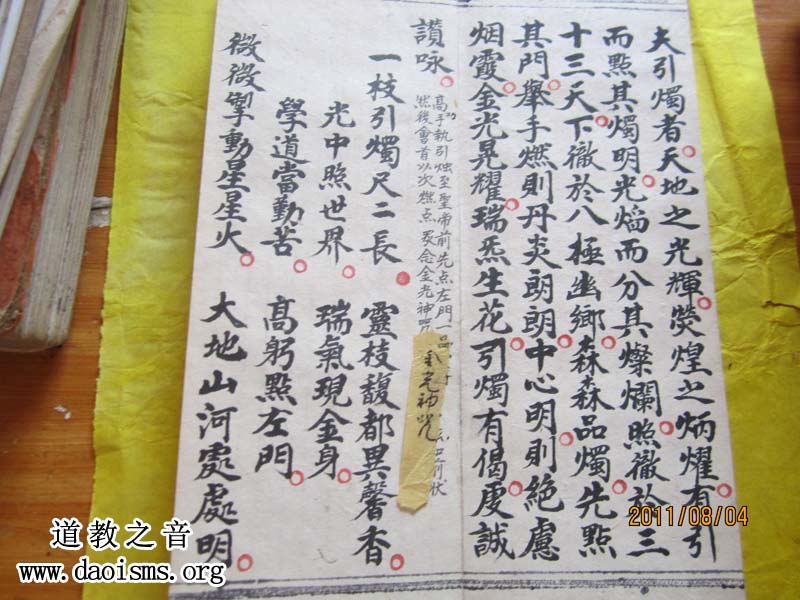 夫引燭者天地之光輝熒煌之炳耀有引
而點其燭明光焰而分其燦爛照徹於三
十三天下徹於八極幽鄉森森品燭先點
其門舉手燃則丹炎朗朗中心明則絕慮
烟霞金光晃耀瑞炁生花引燭有偈虔誠
讚咏
高手執引烛至聖帝前先点左門一
然後會首以次燃点 众念金光神咒
金光神咒
一枝引燭尺二長 靈枝馥都異馨香
光中照世界 瑞氣現金身
學道當勤苦 高躬點左門
微微掣動星星火 大地山河處處明
2011/08/04
道教之音
www.daoisms.org